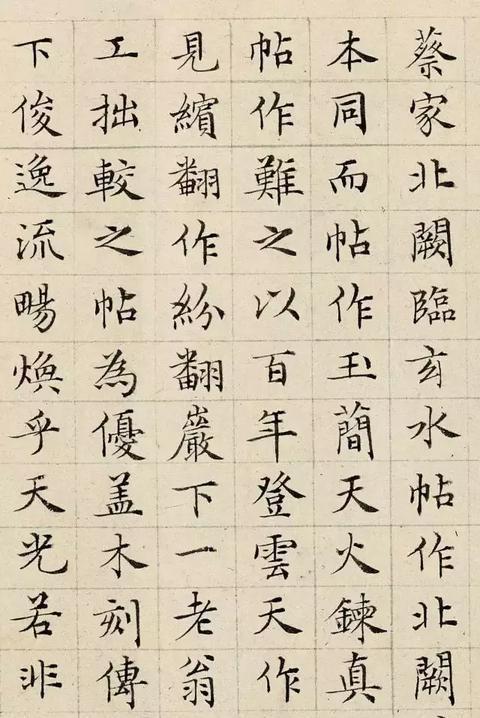 蔡家北闕臨玄水帖作北闕
本同而帖作玉簡天火鍊真
帖作難之以百年登雲天作
見繽翻作紛翻巖下一老翁
工拙較之帖為優盖木刻傳
下俊逸流暢煥乎天光若非